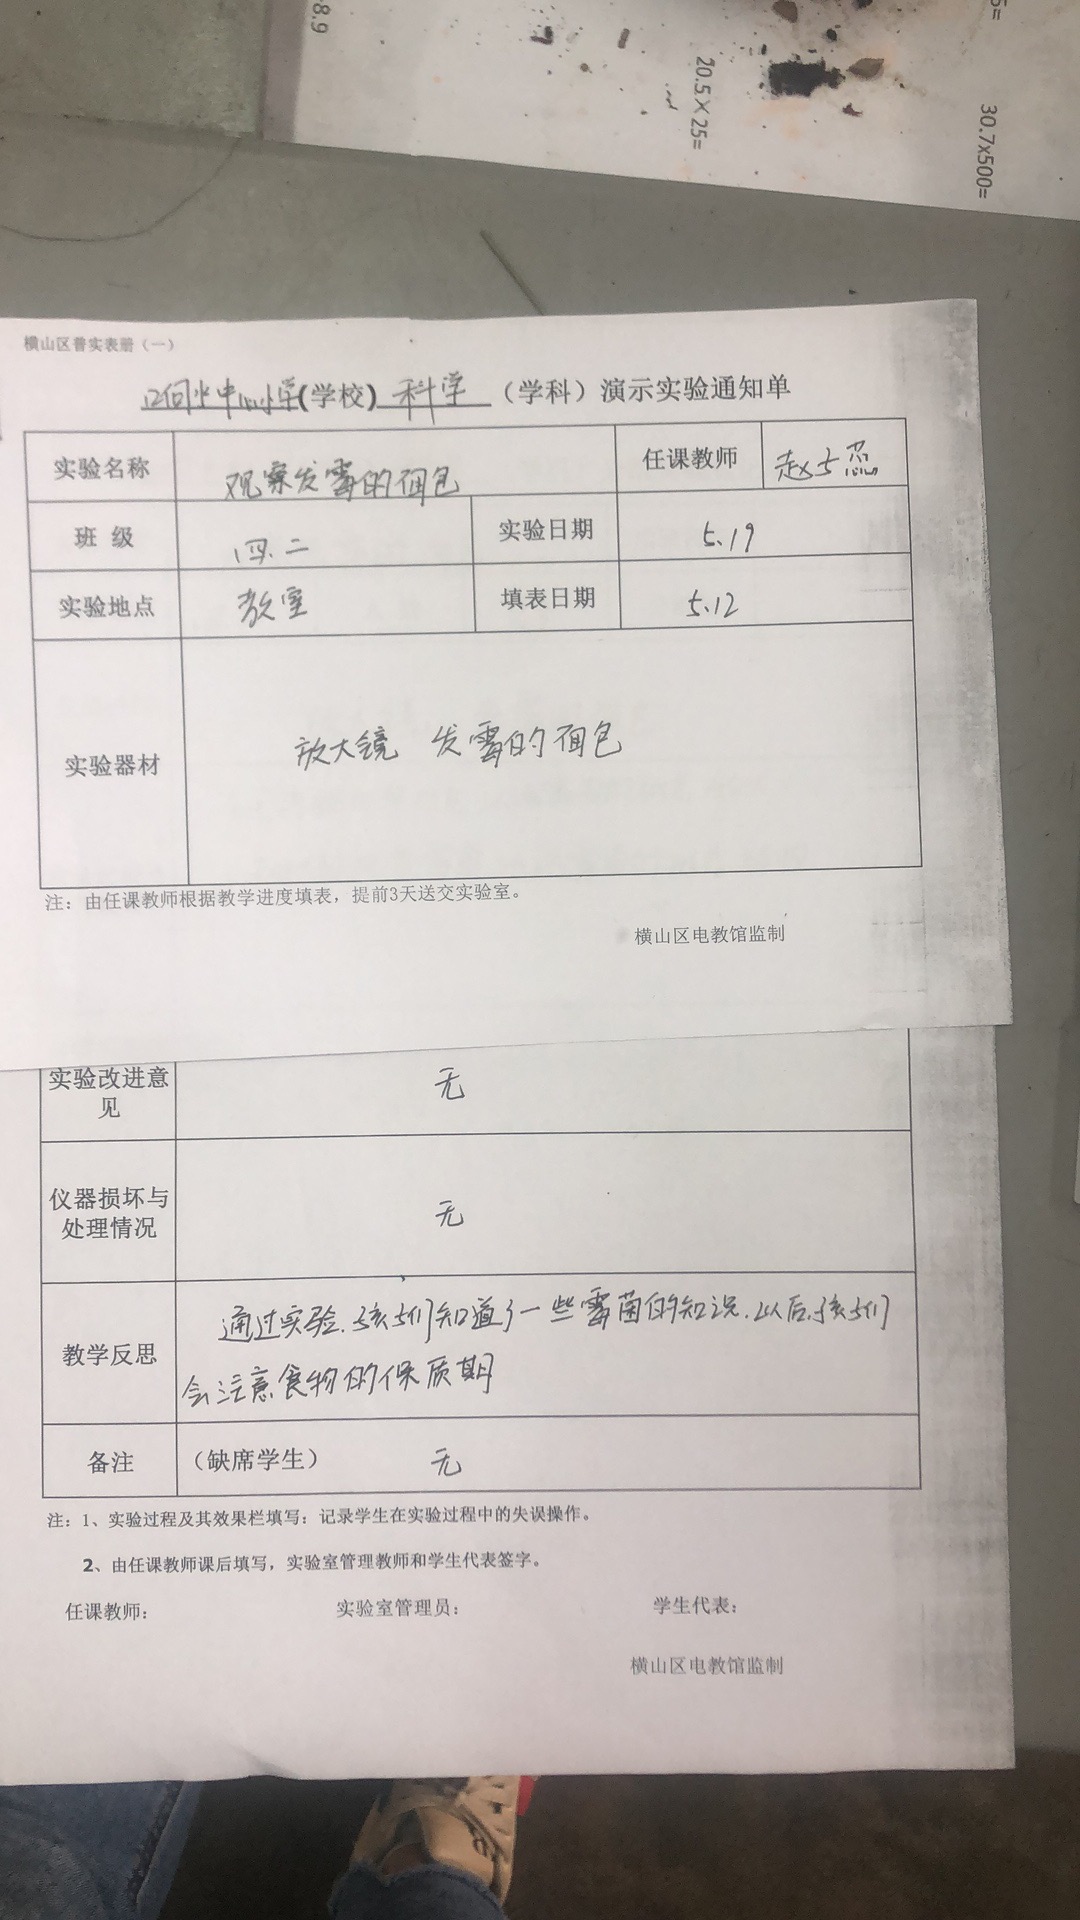 8.9
5=
20.5×25=
30.7x500=
横山区普实表册（一）
中心小学(学校) 科学 （学科）演示实验通知单
实验名称 观察发霉的面包 任课教师 赵
班 级 四.二 实验日期 5.19
实验地点 教室 填表日期 5.12
实验器材 放大镜 发霉的面包
注：由任课教师根据教学进度填表，提前3天送交实验室。
横山区电教馆监制
实验改进意
见
无
仪器损坏与
处理情况
无
教学反思
通过实验.孩子们知道了一些霉菌的知识.以后.孩子们
会注意食物的保质期
备注 （缺席学生） 无
注：1、实验过程及其效果栏填写：记录学生在实验过程中的失误操作。
2、由任课教师课后填写，实验室管理教师和学生代表签字。
任课教师： 实验室管理员： 学生代表：
横山区电教馆监制